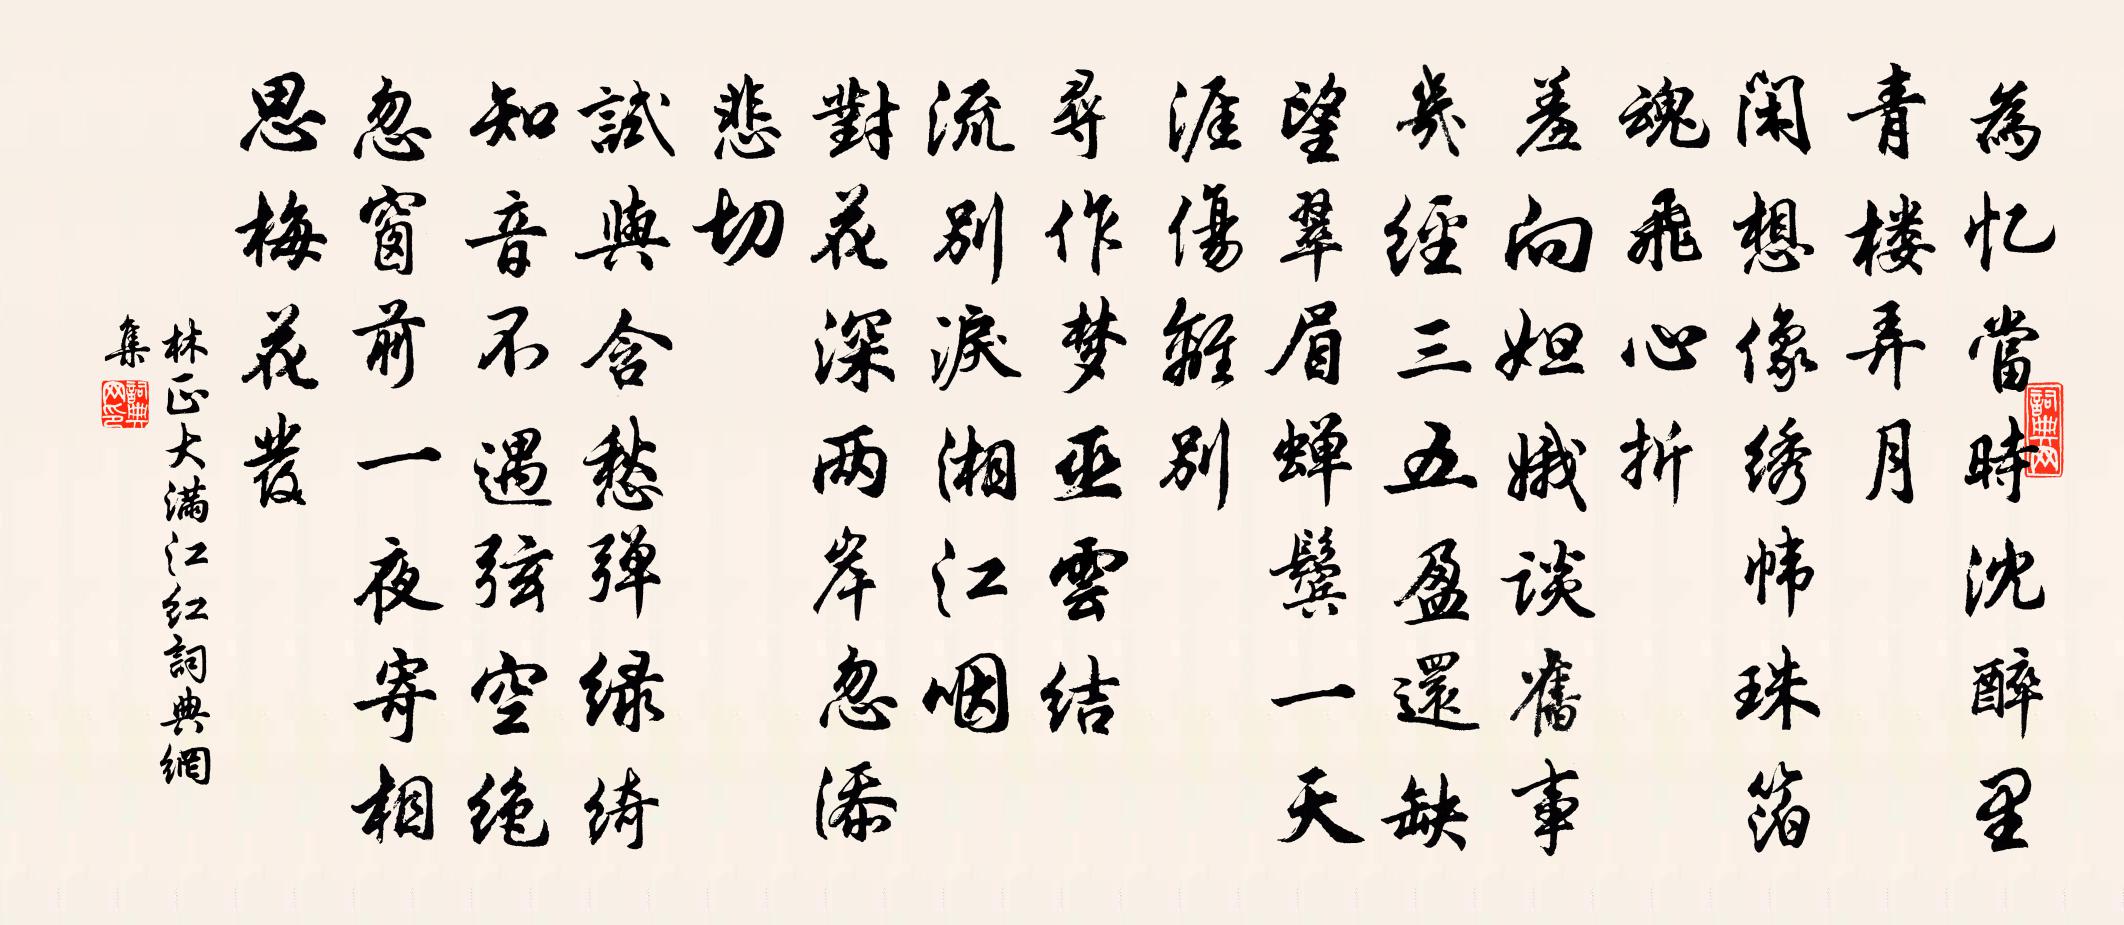 為忆當時沈醉里
青楼弄月
闲想像绣帏珠箔
魂飛心折
羞向妲娥谈舊事
幾經三五盈還缺
望翠眉蝉鬓一天
涯傷離别
尋作梦巫雲结
流别淚湘江咽
對花深两岸忽添
悲切
試與含愁弹绿绮
知音不遇弦空绝
忽窗前一夜寄相
思梅花發
林正大满江红詞典網
集
詞典网
詞典网印